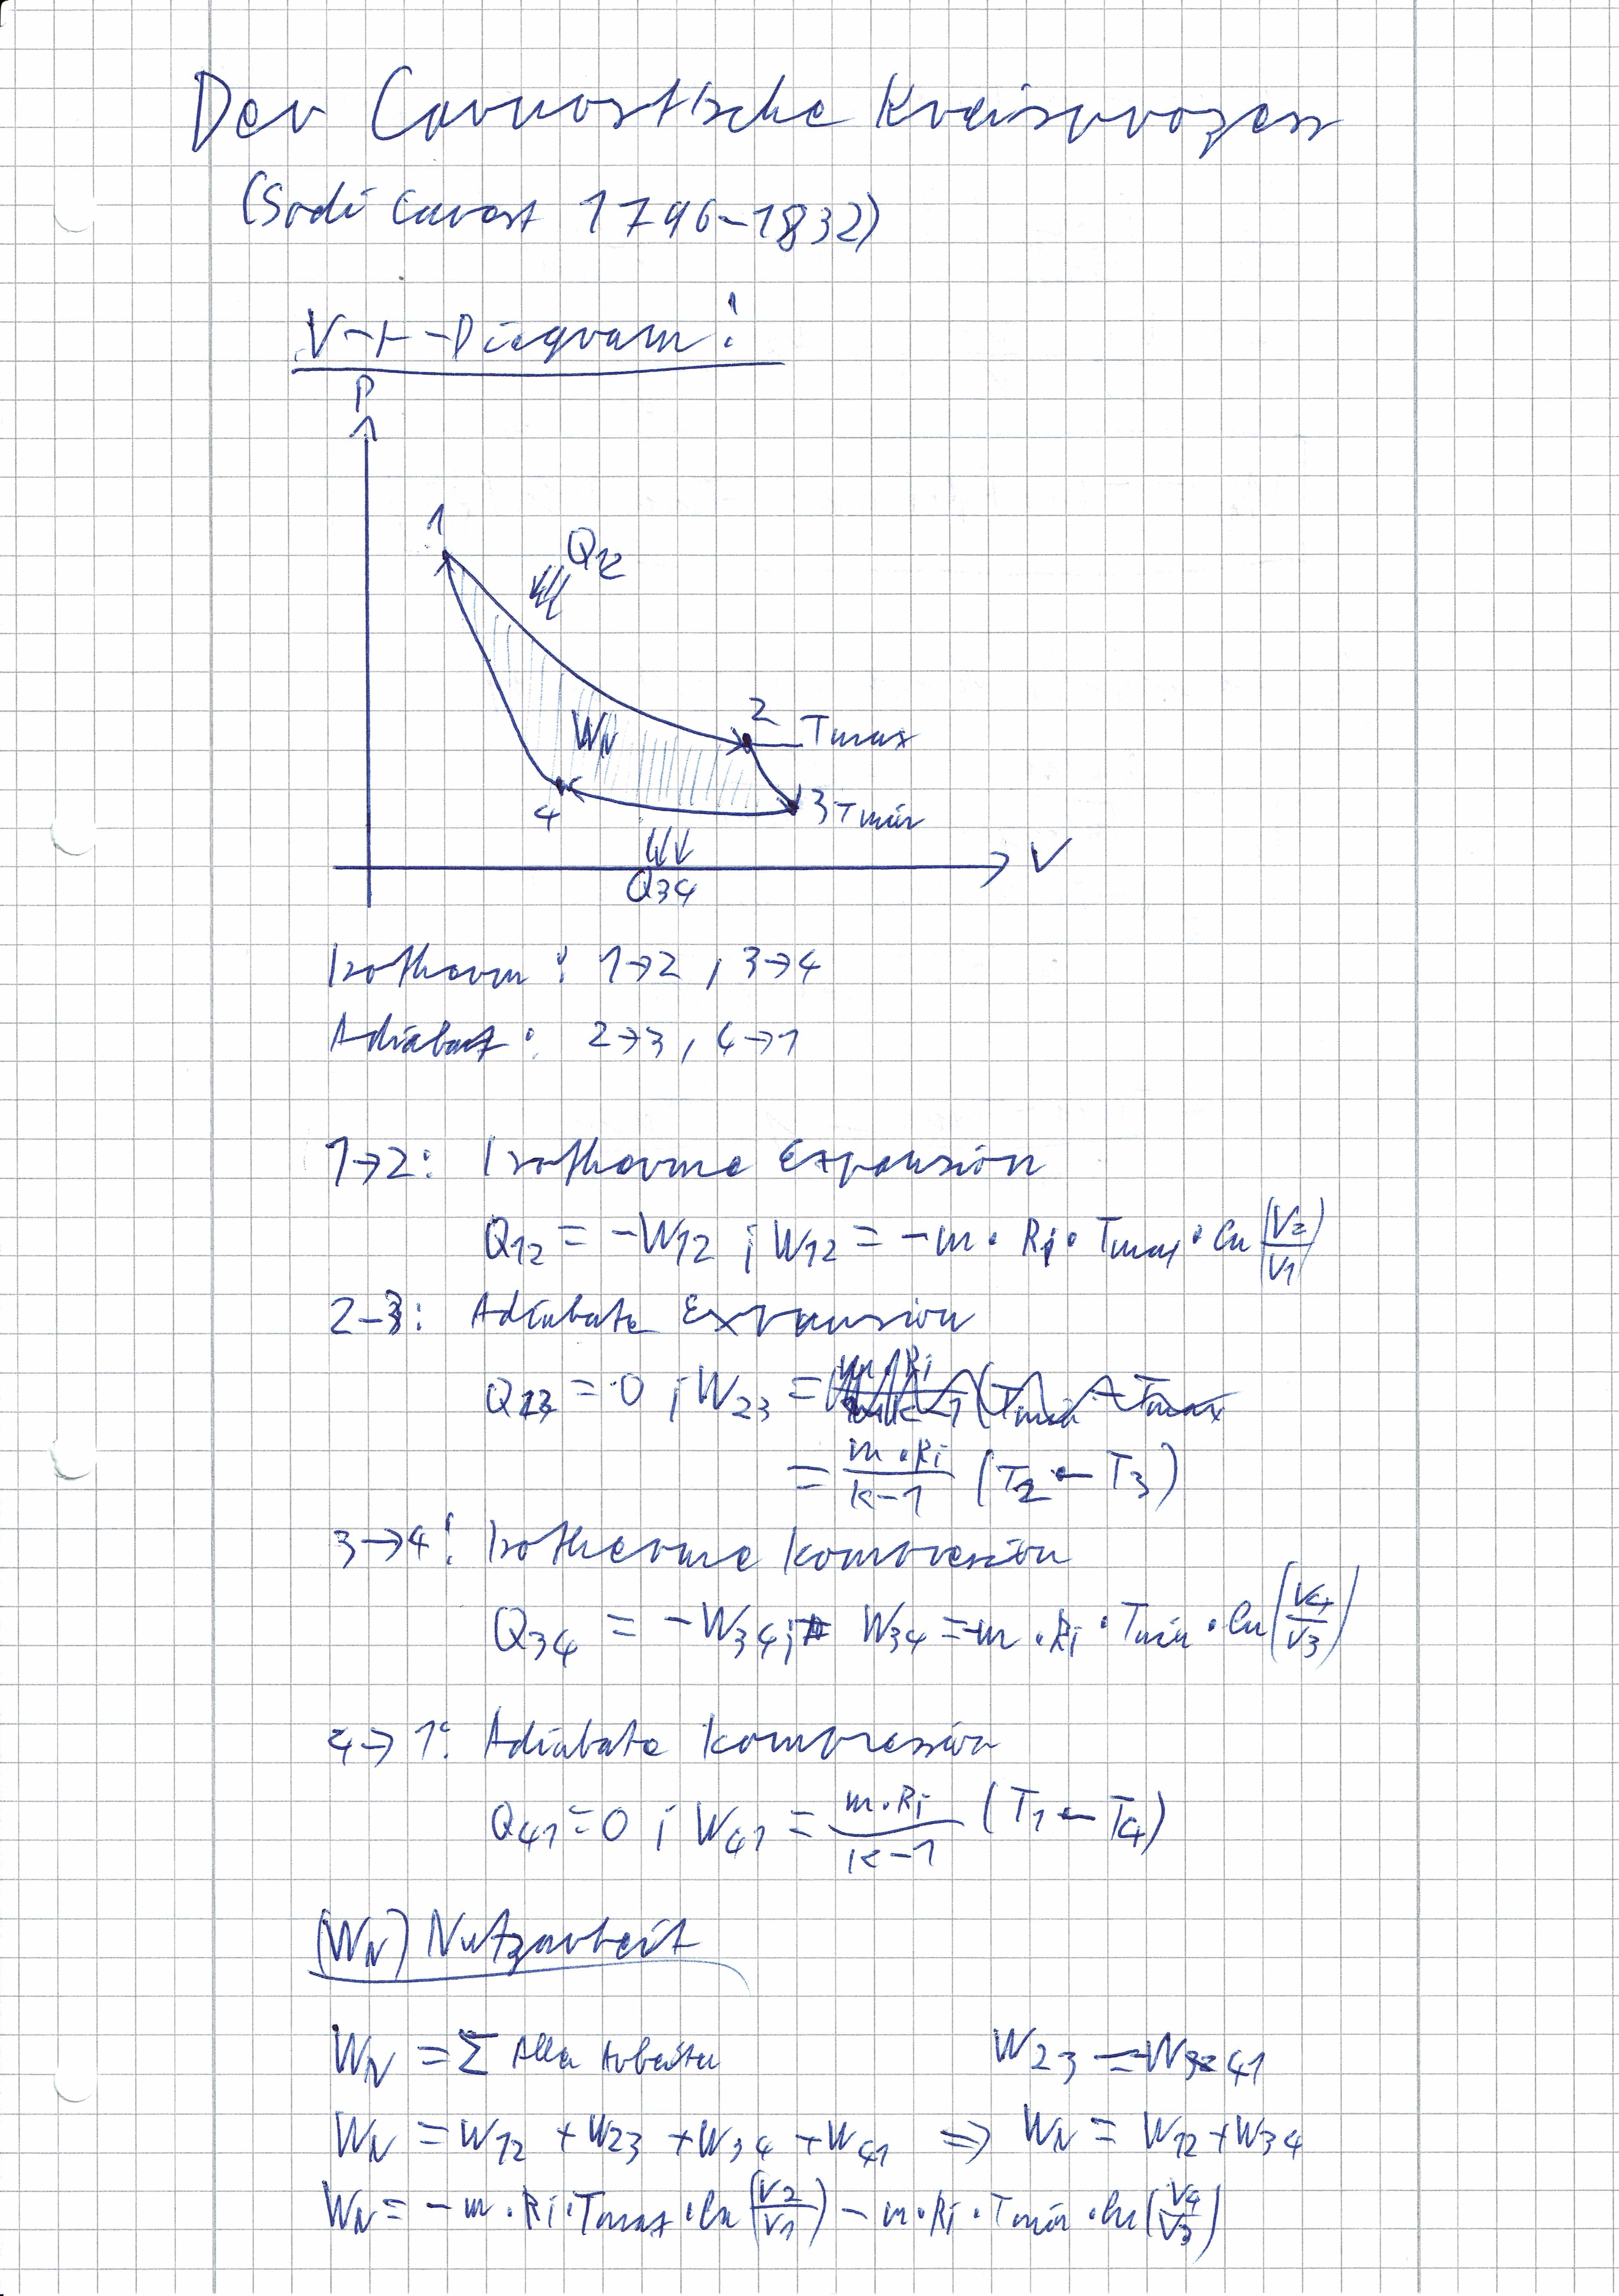 Der Carnostische Kreisprozess
(Sadi Carnost 1796-1832)
V-t-Diagram:
P
1
Q12
WN
2 Tmax
4
3 Tmin
V
Q34
Isotherm: 1→2, 3→4
Adiabat: 2→3, 4→1
1→2: Isotherme Expansion
Q12 = -W12 ; W12 = -m · Ri · Tmax · ln (V2/V1)
2-3: Adiabate Expansion
Q23 = 0 ; W23 =
= m·Ri/(k-1) (T2 - T3)
3→4: Isotherme Kompression
Q34 = -W34; W34 = -m · Ri · Tmin · ln (V4/V3)
4→1: Adiabate Kompression
Q41 = 0 ; W41 = m·Ri/(k-1) (T1 - T4)
(WN) Nutzarbeit
WN = Σ Alle Arbeiten W23 = -W41
WN = W12 + W23 + W34 + W41 => WN = W12 + W34
WN = -m · Ri · Tmax · ln (V2/V1) - m · Ri · Tmin · ln (V4/V3)